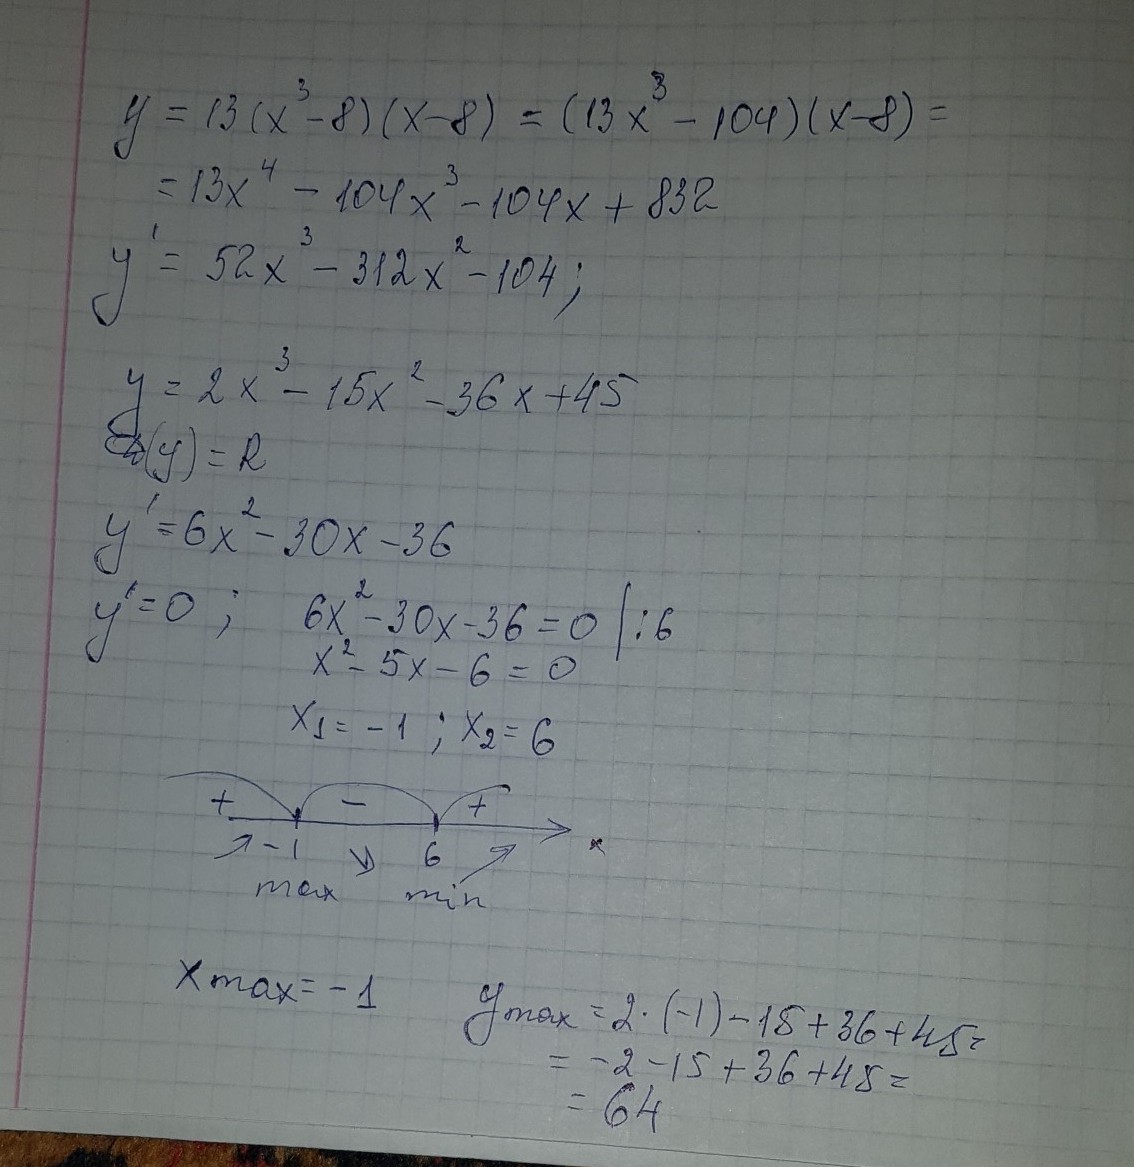 y = 13(x³-8)(x-8) = (13x³ - 104)(x-8) =
= 13x⁴ - 104x³ - 104x + 832
y' = 52x³ - 312x² - 104;
y = 2x³ - 15x² - 36x + 45
(y) = R
y' = 6x² - 30x - 36
y' = 0 ; 6x² - 30x - 36 = 0 | : 6
x² - 5x - 6 = 0
x₁ = -1 ; x₂ = 6
+ - +
-1 6 x
max min
x max = -1 y max = 2·(-1) - 15 + 36 + 45 =
= -2 - 15 + 36 + 45 =
= 64